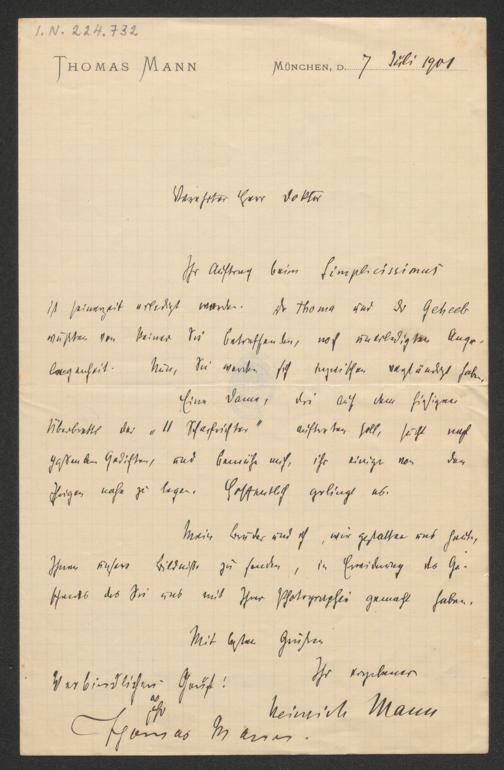 I.N. 224.732
THOMAS MANN MÜNCHEN, D. 7 Juli 1901
Verehrter Herr Doktor
Ihr Auftrag beim Simplicissimus
ist seinerzeit erledigt worden. Dr Thoma und Dr Geheeb
wußten von keiner Sie betreffenden, noch unerledigten Ange-
legenheit. Nun, Sie werden sich inzwischen verständigt haben.
Eine Dame, die auf dem hiesigen
Überbrettl der "11 Scharfrichter" auftreten soll, sucht nach
passenden Gedichten, und bemühe mich, ihr einige von den
Ihrigen nahe zu legen. Hoffentlich gelingt es.
Mein Bruder und ich, wir gestatten uns heute,
Ihnen unsere Bildnisse zu senden, in Erwiderung des Ge-
schenks das Sie uns mit Ihrer Photographie gemacht haben.
Mit besten Grüßen
Ihr ergebener
Heinrich Mann
Verbindlichen Gruß!
Ihr
Thomas Mann.